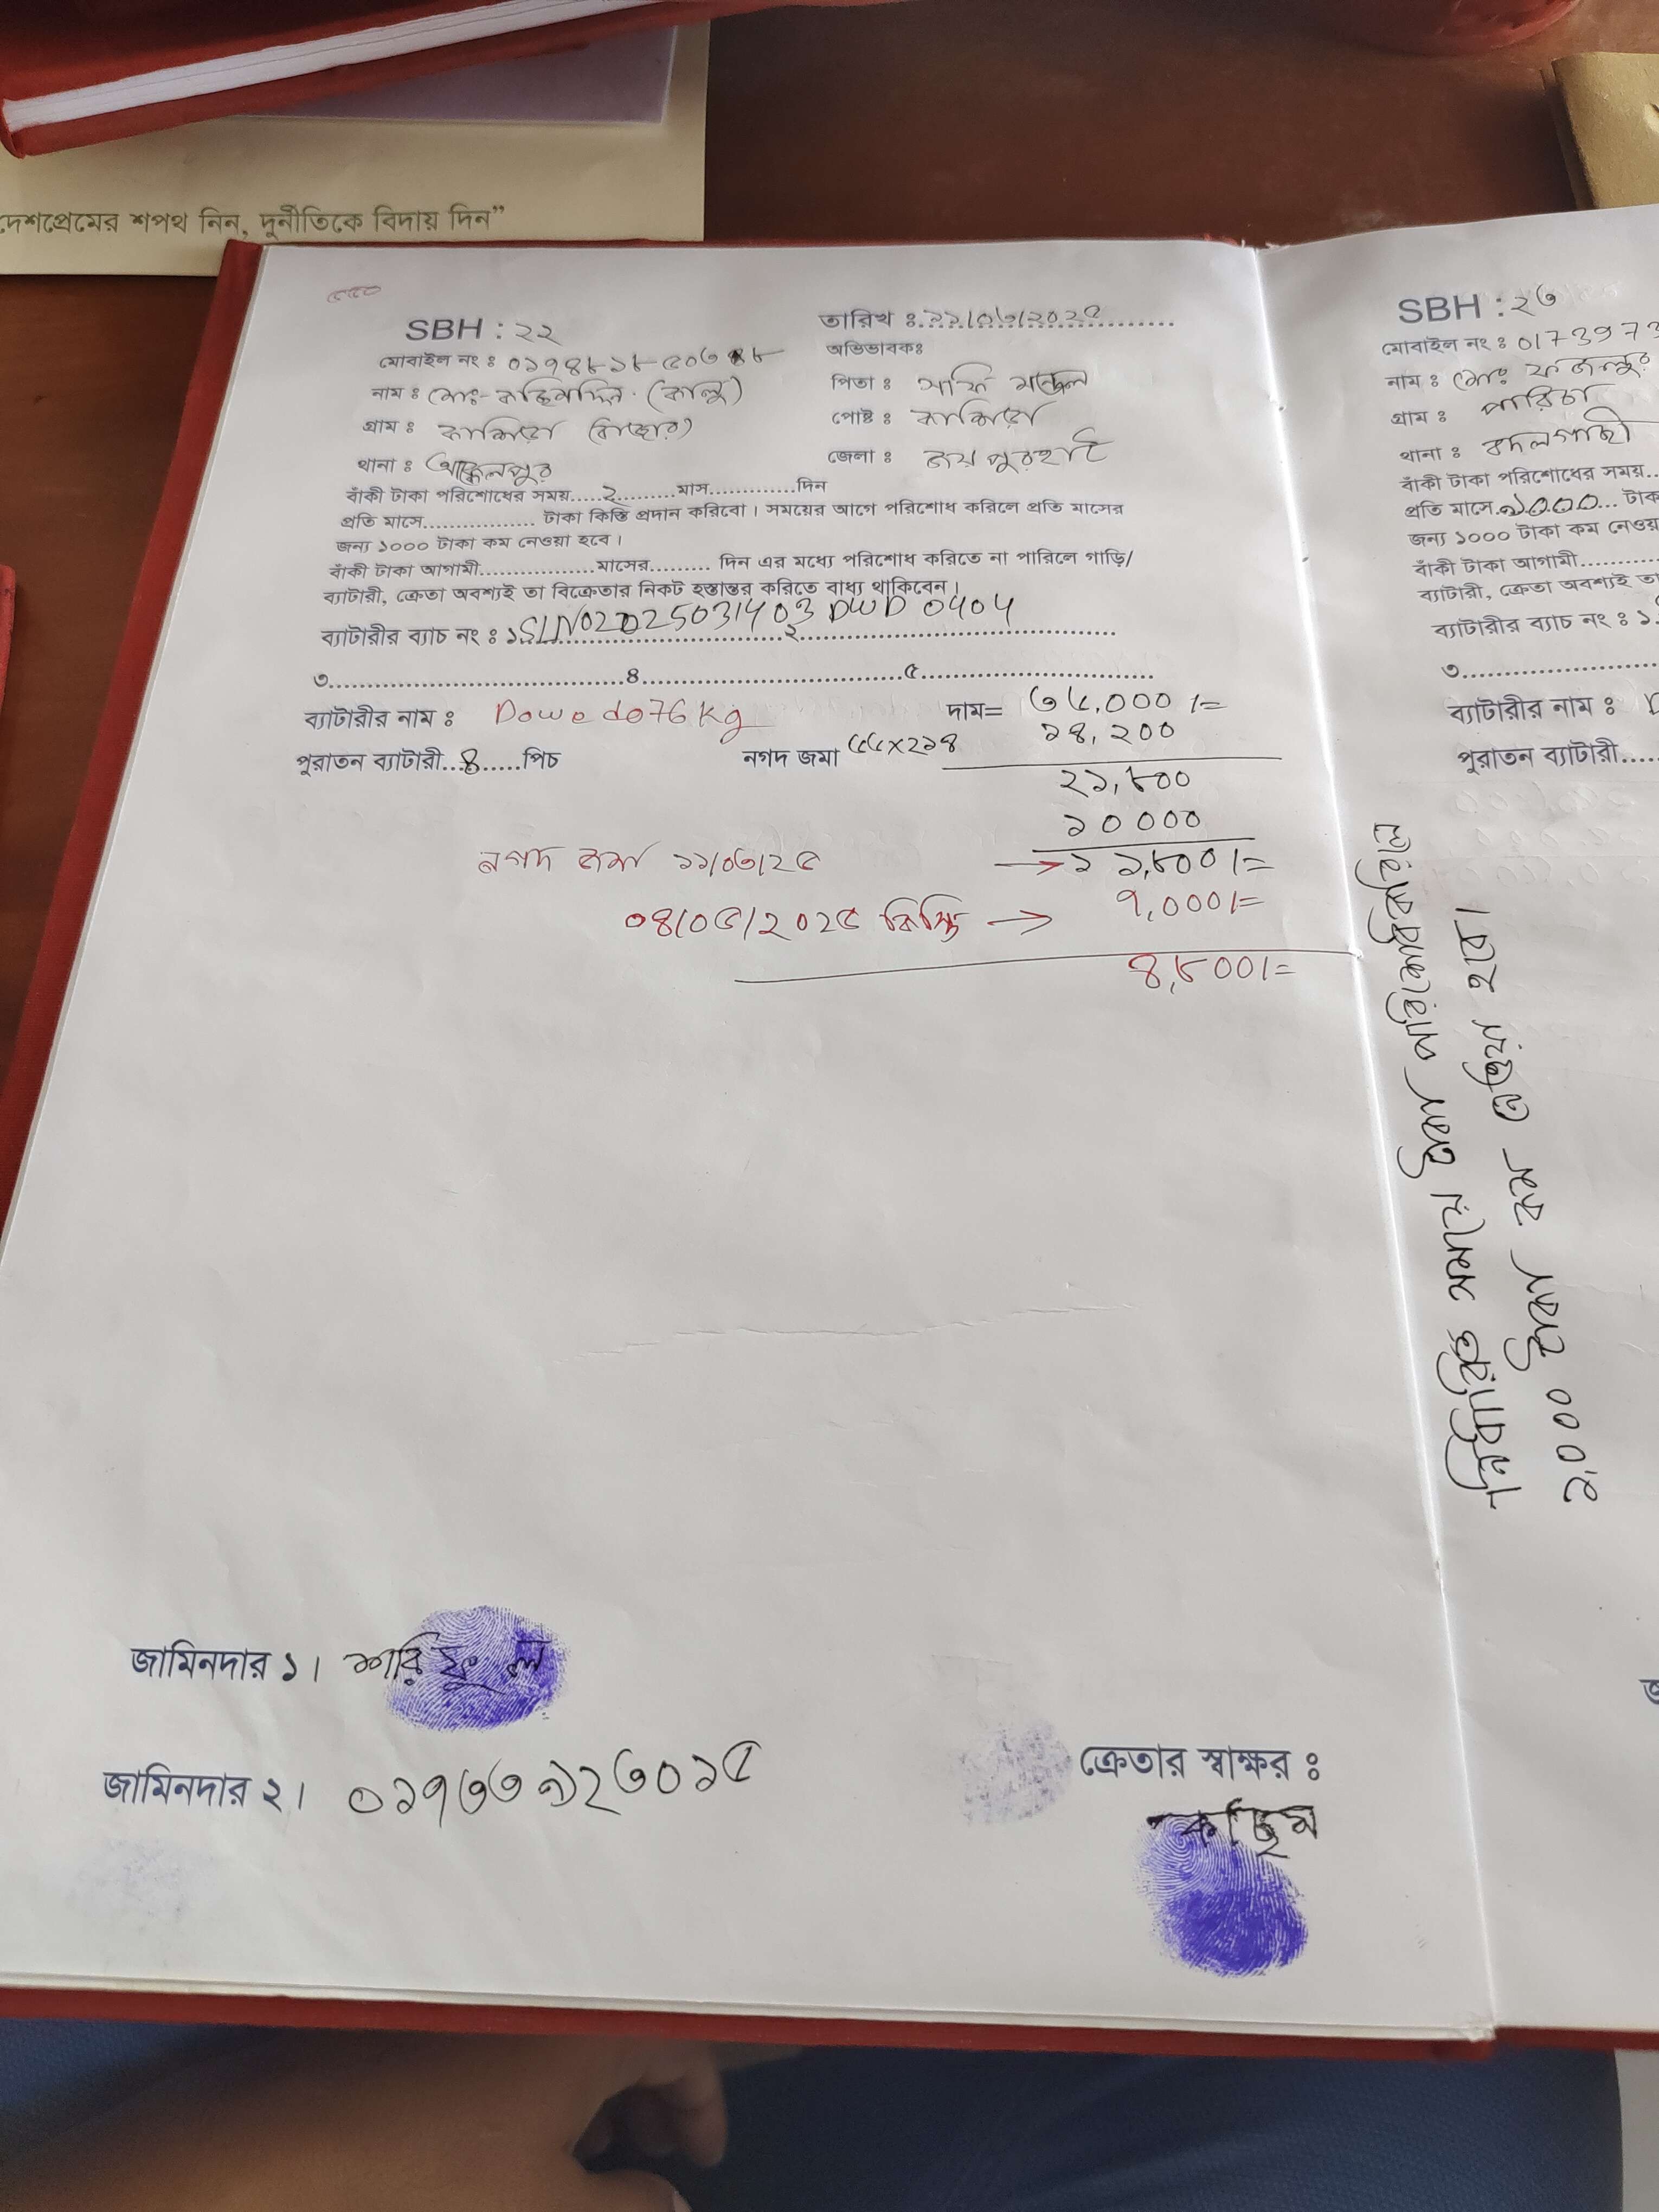 দেশপ্রেমের শপথ নিন, দুর্নীতিকে বিদায় দিন”
SBH : ২২
তারিখ ঃ ১১/০৩/২০২৫
মোবাইল নং ঃ
অভিভাবকঃ
নাম ঃ মোঃ- কাছিমদ্দিন (কালু)
পিতা ঃ মন্ডল
গ্রাম ঃ (বাজার)
পোষ্ট ঃ
থানা ঃ আক্কেলপুর
জেলা ঃ জয়পুরহাট
বাঁকী টাকা পরিশোধের সময়.....২.........মাস.............দিন
প্রতি মাসে................. টাকা কিস্তি প্রদান করিবো। সময়ের আগে পরিশোধ করিলে প্রতি মাসের
জন্য ১০০০ টাকা কম নেওয়া হবে।
বাঁকী টাকা আগামী.................মাসের......... দিন এর মধ্যে পরিশোধ করিতে না পারিলে গাড়ি/
ব্যাটারী, ক্রেতা অবশ্যই তা বিক্রেতার নিকট হস্তান্তর করিতে বাধ্য থাকিবেন।
ব্যাটারীর ব্যাচ নং ঃ ১ ২
৩.................................৪...............................৫............................
ব্যাটারীর নাম ঃ Dowedo 76 Kg
দাম= ৩৬,০০০/=
পুরাতন ব্যাটারী...৪......পিচ
নগদ জমা ৬৬x২১৪ ১৪,২০০
২১,৮০০
১০০০০
নগদ জমা ১১/০৩/২৫ → ১১,৮০০/=
০৪/০৫/২০২৫ কিস্তি → ৭,০০০/=
৪,৮০০/=
জামিনদার ১। শারিফুল
জামিনদার ২। ০১৭৩৩৯২৩০১৫
ক্রেতার স্বাক্ষর ঃ
কাছিম
SBH : ২৩
মোবাইল নং ঃ 0173973
নাম ঃ মোঃ ফজলুর
গ্রাম ঃ পারিচা
থানা ঃ বদলগাছী
বাঁকী টাকা পরিশোধের সময়..
প্রতি মাসে ... টাক
জন্য ১০০০ টাকা কম নেওয়
বাঁকী টাকা আগামী............
ব্যাটারী, ক্রেতা অবশ্যই তা
ব্যাটারীর ব্যাচ নং ঃ ১.
৩..................
ব্যাটারীর নাম ঃ D
পুরাতন ব্যাটারী.....
নির্ধারিত সময়ে টাকা পরিশোধ করিলে
১,০০০ টাকা কম নেওয়া হবে।